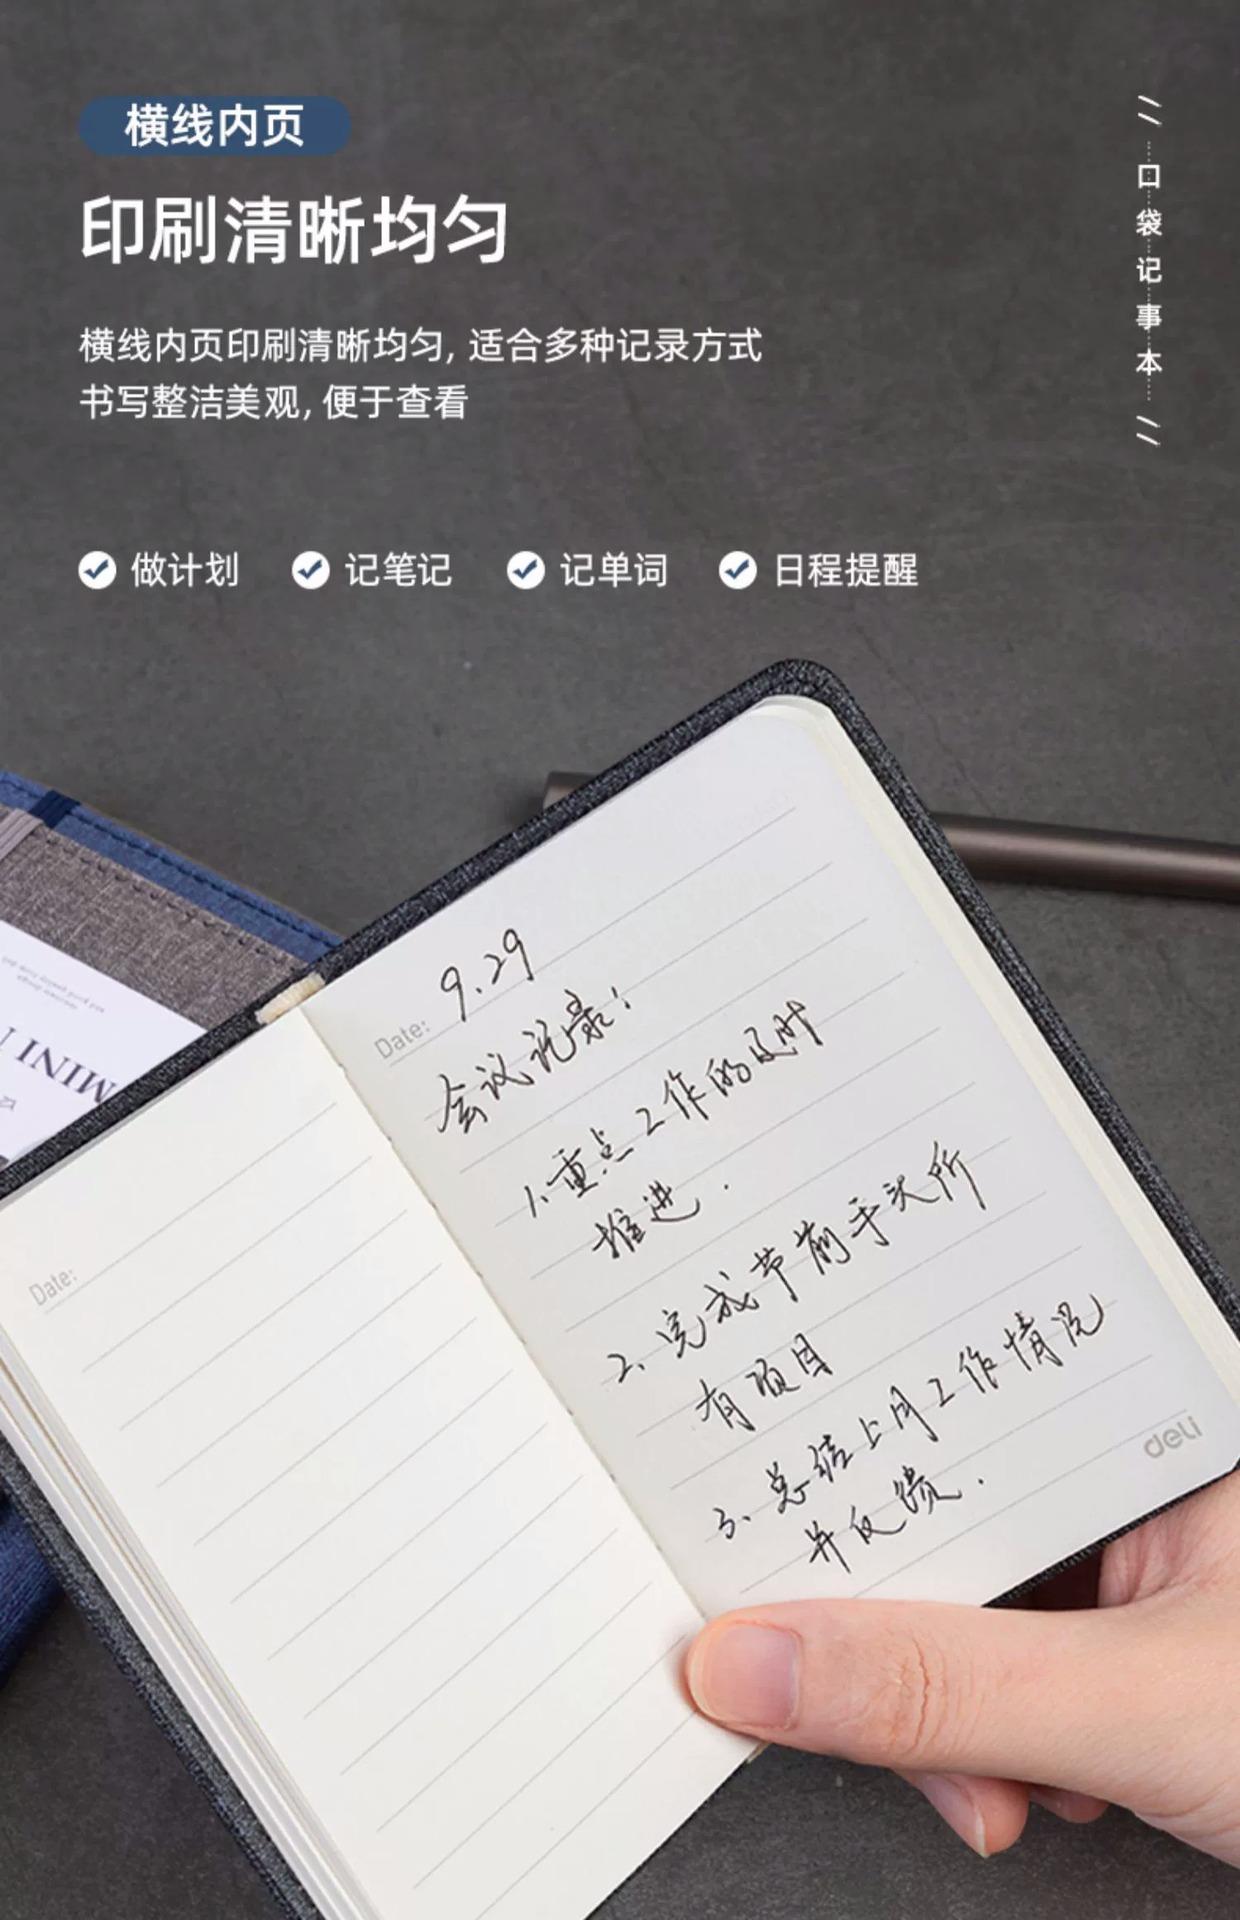 横线内页
印刷清晰均匀
横线内页印刷清晰均匀, 适合多种记录方式
书写整洁美观, 便于查看
做计划 记笔记 记单词 日程提醒
口袋记事本
MINI
Date:
Date: 9.29
会议记录:
1.重点工作的及时
推进.
2、完成节前手头所
有项目
3、总结上月工作情况
并反馈.
deli